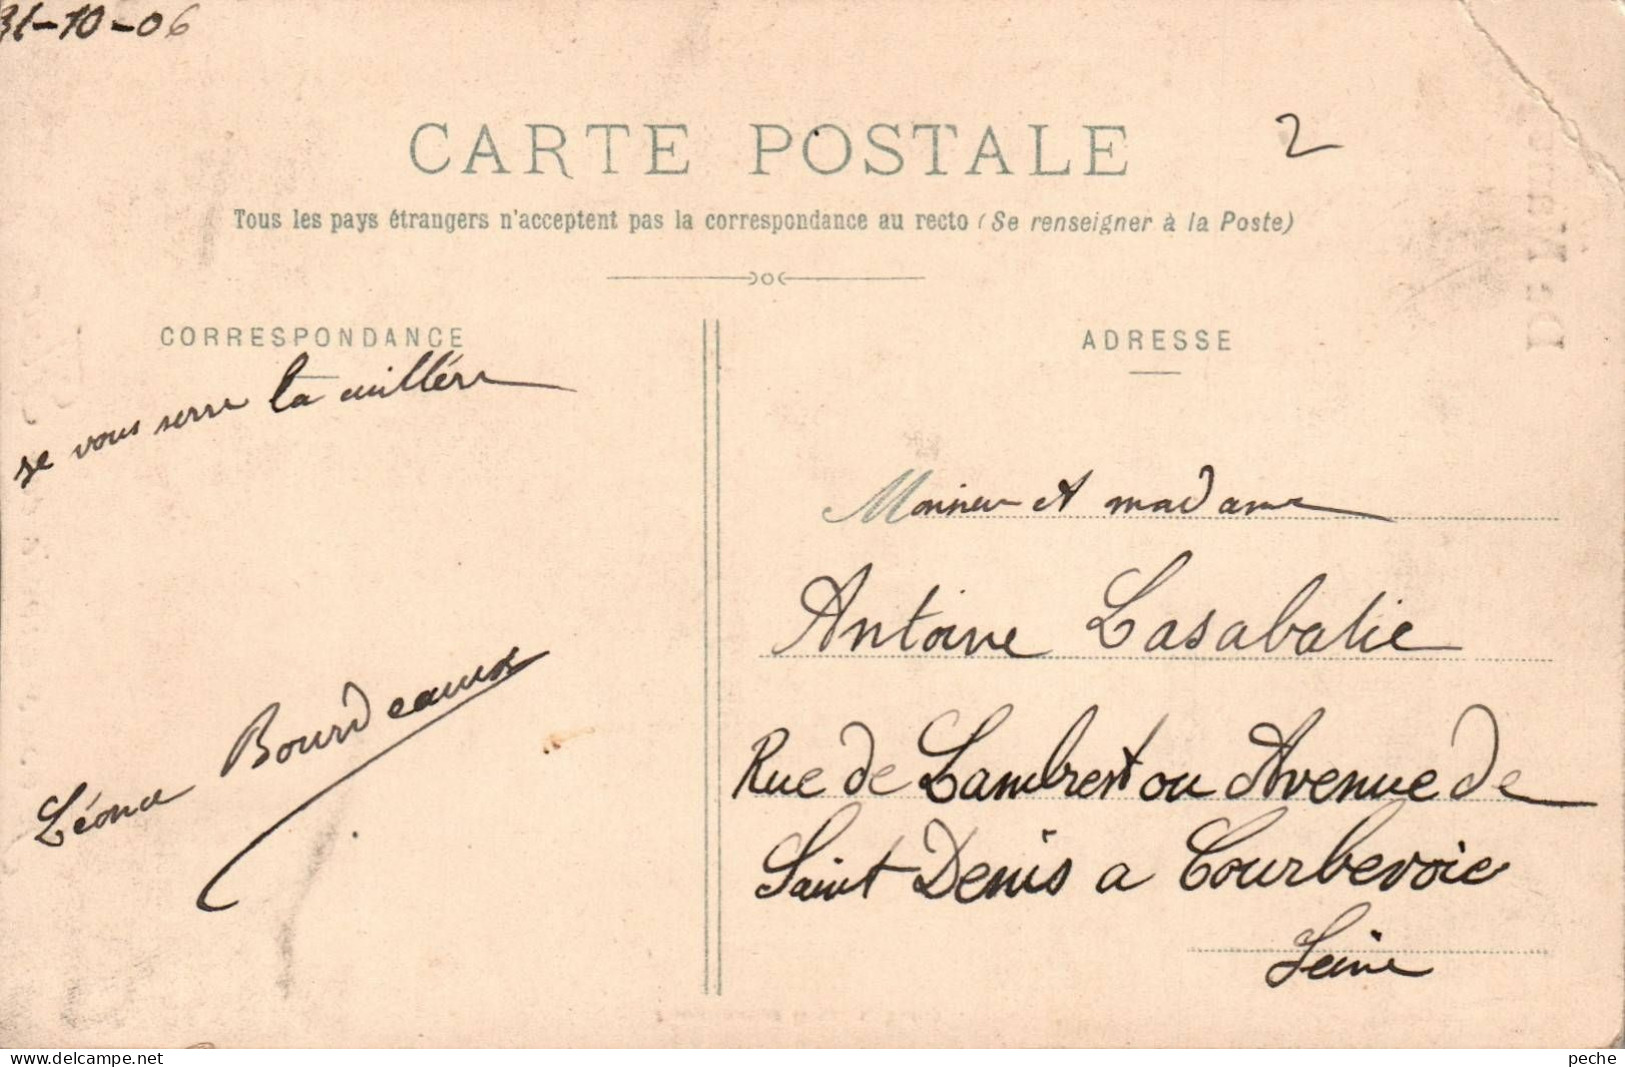 31-10-06
CARTE POSTALE
2
Tous les pays étrangers n'acceptent pas la correspondance au recto (Se renseigner à la Poste)
CORRESPONDANCE
je vous serre la cuillére
Léona Bourdeaux
ADRESSE
Monsieur et madame
Antoine Lasabatie
Rue de Lambrest ou Avenue de
Saint Denis a Courbevoie
Seine
www.delcampe.net
peche